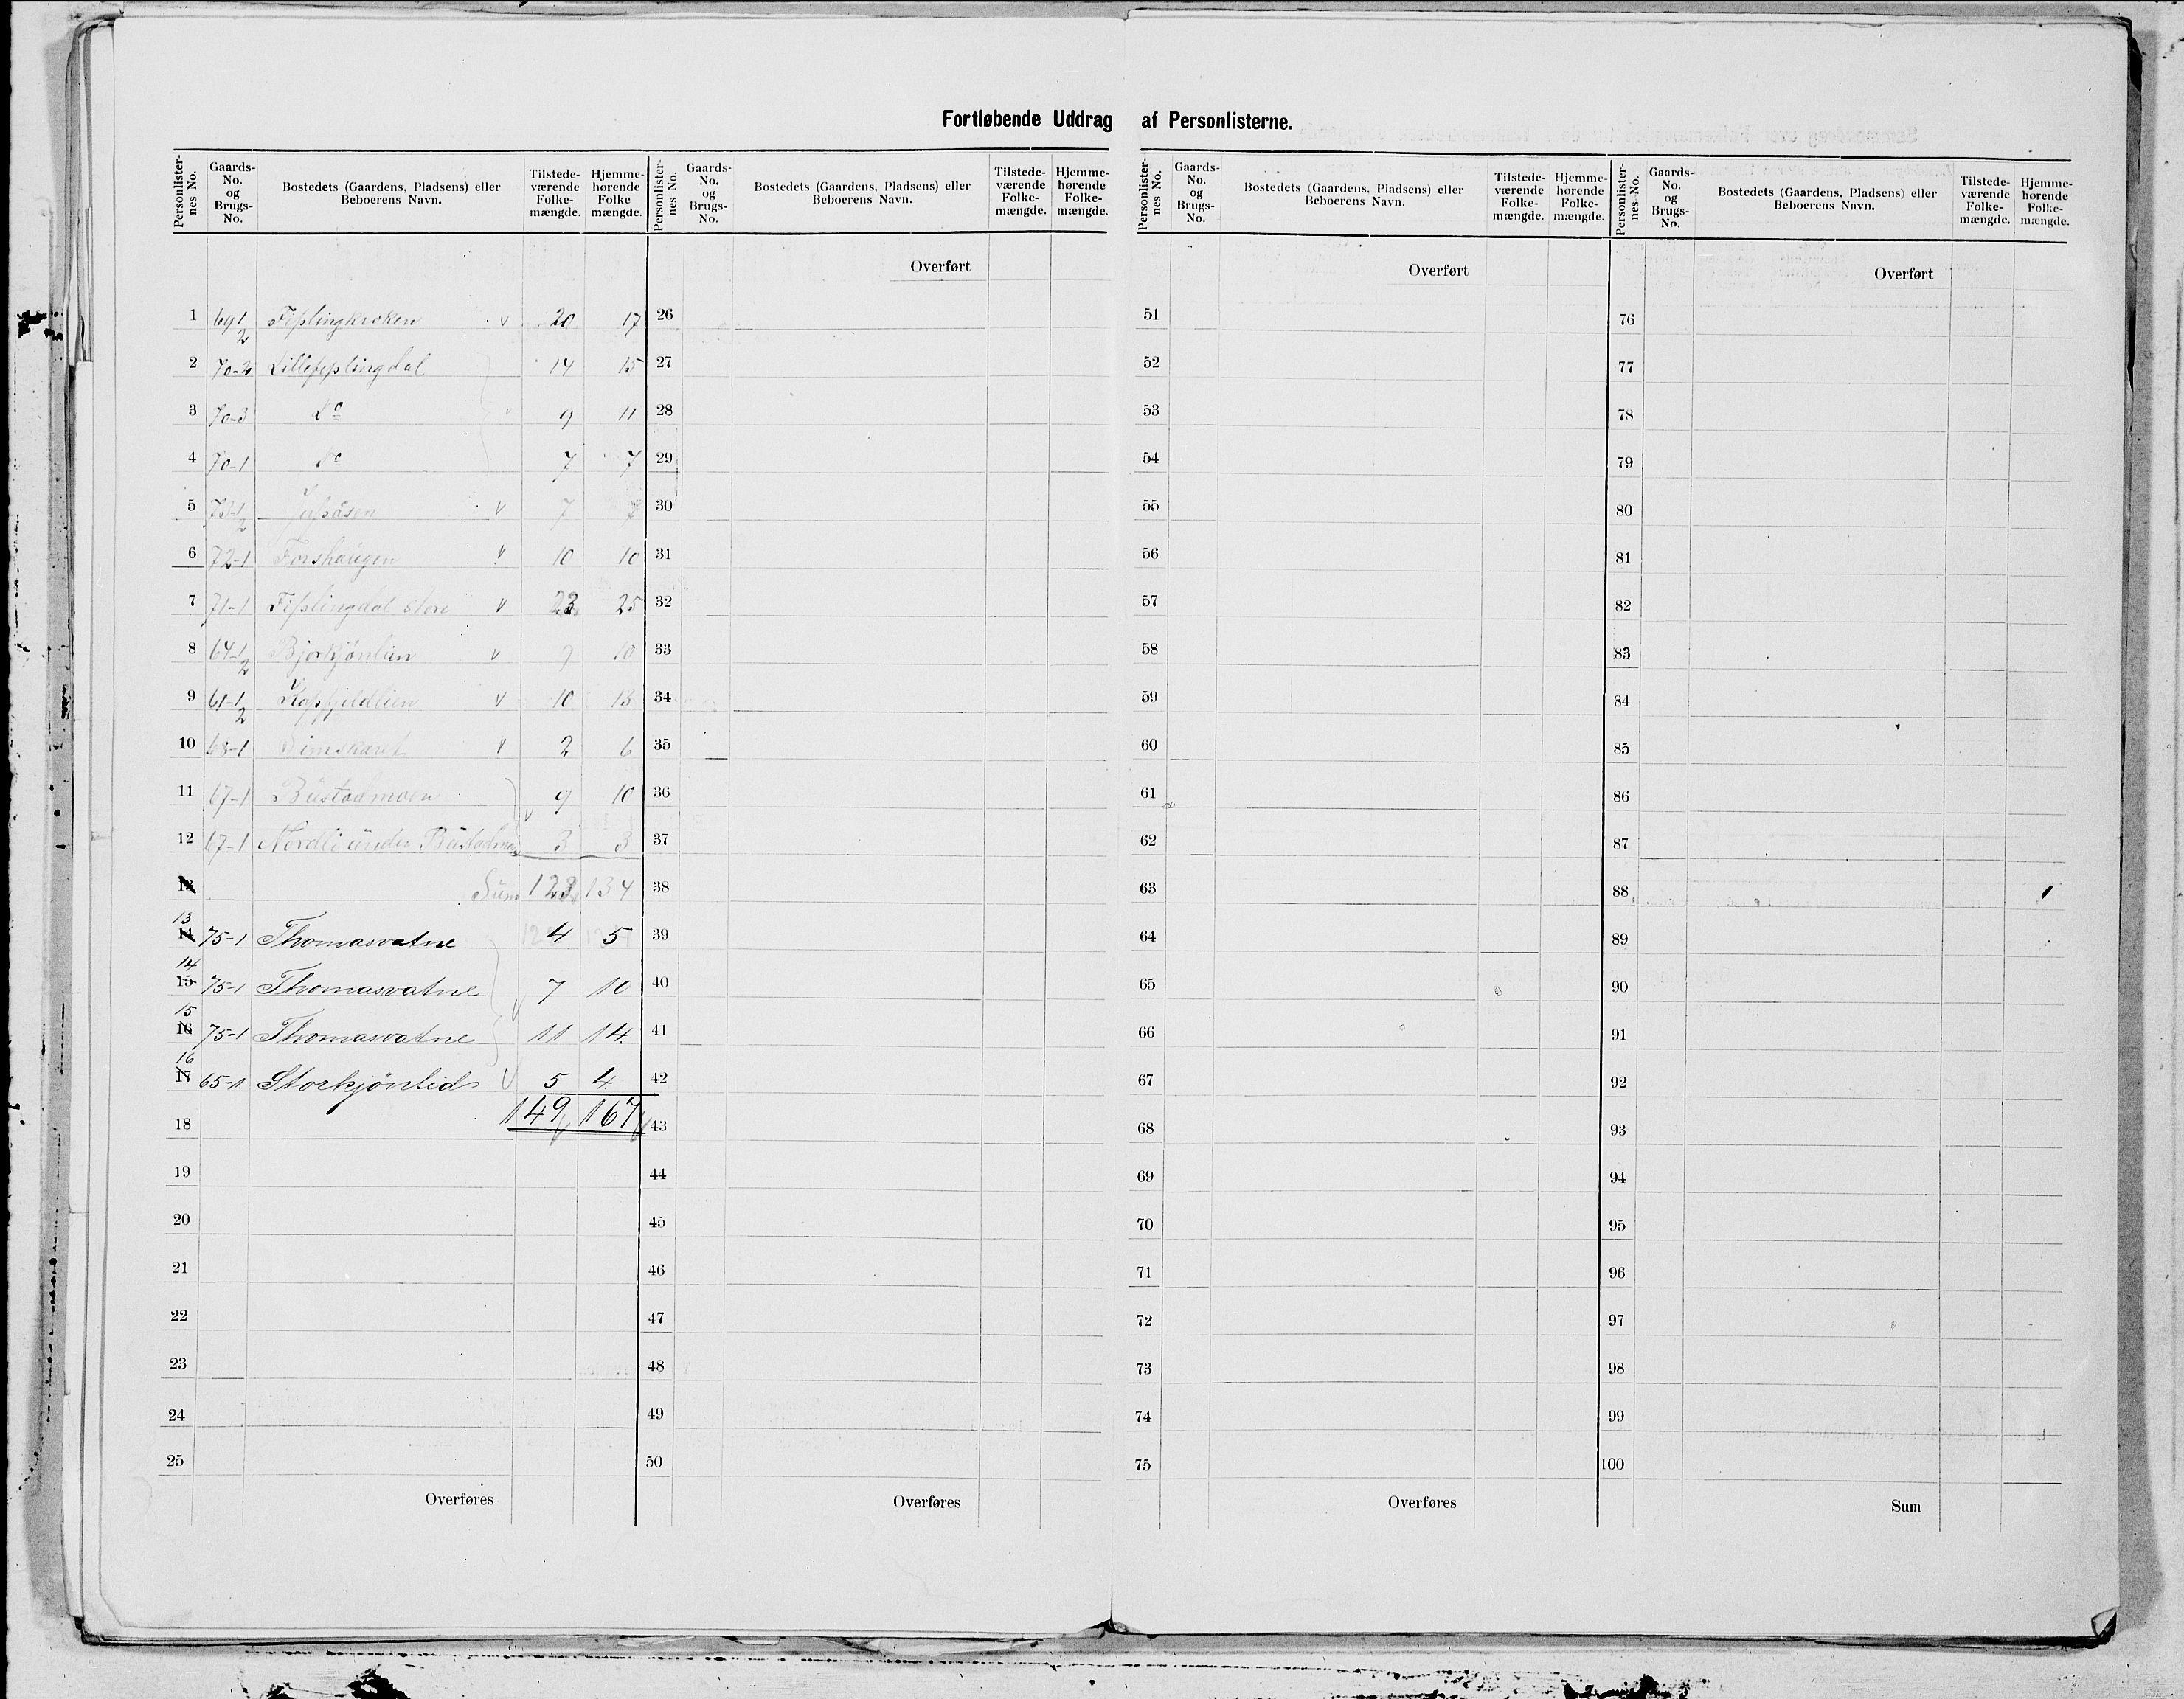 Fortløbende Uddrag af Personlisterne.
Personlister-nes No. Gaards-No. og Brugs-No. Bostedets (Gaardens, Pladsens) eller Beboerens Navn. Tilstede-værende Folke-mængde. Hjemme-hørende Folke mængde.
Personlister-nes No. Gaards-No. og Brugs-No. Bostedets (Gaardens, Pladsens) eller Beboerens Navn. Tilstede-værende Folke-mængde. Hjemme-hørende Folke-mængde.
Personlister-nes No. Gaards-No. og Brugs-No. Bostedets (Gaardens, Pladsens) eller Beboerens Navn. Tilstede-værende Folke-mængde. Hjemme-hørende Folke-mængde.
Personlister-nes No. Gaards-No. og Brugs-No. Bostedets (Gaardens, Pladsens) eller Beboerens Navn. Tilstede-værende Folke-mængde. Hjemme-hørende Folke-mængde.
Overført Overført Overført
1 69 1/2 Fiplingkroken v 20 17 26 51 76
2 70-2 Lillefiplingdal 14 15 27 52 77
3 70-3 Do 9 11 28 53 78
4 70-1 Do 7 7 29 54 79
5 v 7 7 30 55 80
6 72-1 Forshaugen v 10 10 31 56 81
7 71-1 Fiplingdal store v 23 25 32 57 82
8 64-1/2 Bjorkjønlien v 9 10 33 58 83
9 61-1/2 Kapfjeldlien v 10 13 34 59 84
10 68-1 Simskaret v 2 6 35 60 85
11 67-1 Bustadmoen 9 10 36 61 86
12 67-1 Nordli under Bustadmo 3 3 37 62 87
13 Sum 123 134 38 63 88
13 14 75-1 Thomasvatne 4 5 39 64 89
14 15 75-1 Thomasvatne 7 10 40 65 90
15 16 75-1 Thomasvatne 11 14 41 66 91
16 17 65-1 Storkjønlid v 5 4 42 67 92
18 149 167 43 68 93
19 44 69 94
20 45 70 95
21 46 71 96
22 47 72 97
23 48 73 98
24 49 74 99
25 50 75 100
Overføres Overføres Overføres Sum